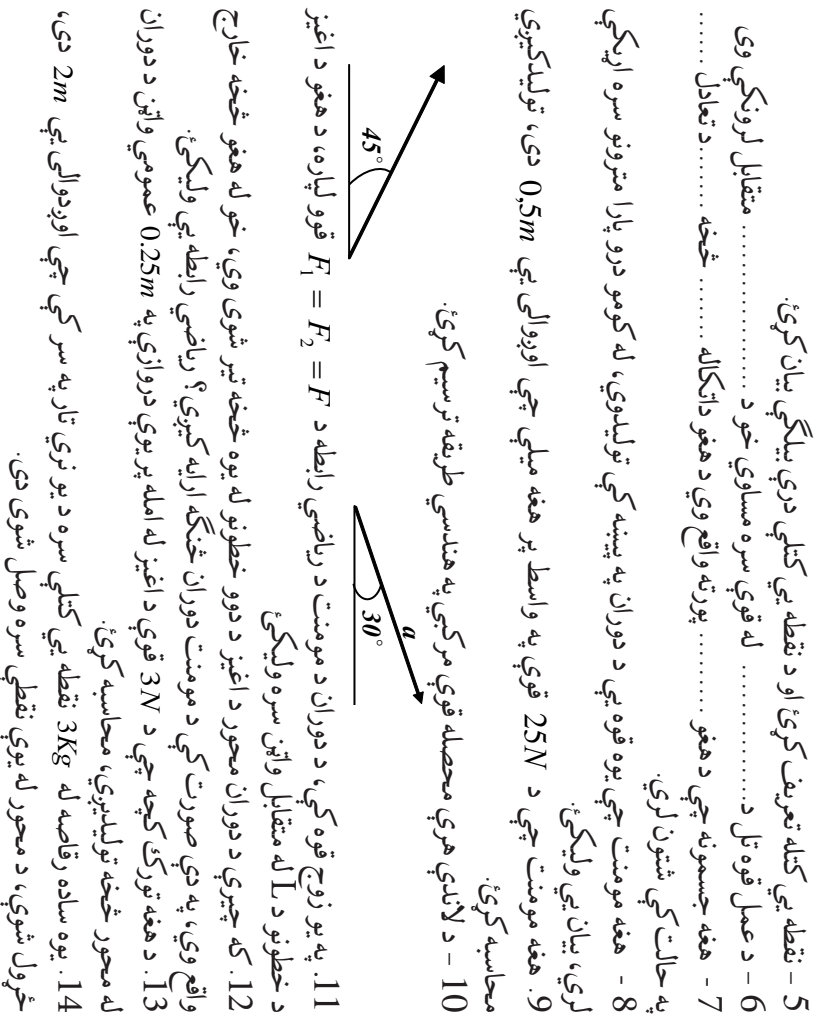 5 – نقطه یي کتله تعریف کړئ او د نقطه یي کتلي درې بیلګې بیان کړئ.
6 – د عمل قوه تل د .................. له قوې سره مساوي خو د .................. متقابل لرونکې وي
7 - هغه جسمونه چې د هغو .......... پورته واقع وي د هغو داتکاله ........ څخه ........ د تعادل ......
په حالت کې شتون لري.
8 - هغه مومنت چې یوه قوه یې د دوران په پیښه کې تولیدوي، له کومو درو پارا مترونو سره اړیکې
لري، بیان یې ولیکئ.
9. هغه مومنت چې د 25N قوې په واسط پر هغه میلې چې اوږوالی یې 0,5m دی، تولیدکیږي
محاسبه کړئ.
10 – د لاندې هرې محصله قوې مرکبې په هندسي طریقه ترسیم کړئ.
45°
a
30°
11. په یو زوج قوه کې، د دوران د مومنت د ریاضي رابطه د F₁ = F₂ = F قوو لپاره، د هغو د اغیز
د خطونو د L له متقابل واټن سره ولیکئ
12. که چیرې د دوران محور د اغیز د دوو خطونو له یوه څخه تیر شوی وي، خو له هغو څخه خارج
واقع وي، په دې صورت کې د مومنت دوران څنګه ارایه کیږي؟ ریاضي رابطه یې ولیکئ.
13. د هغه تورک کچه چې د 3N قوې د اغیز له امله پر یوې دروازې په 0.25m عمومي واټن د دوران
له محور څخه تولیدیږي، محاسبه کړئ.
14. یوه ساده رقاصه له 3Kg نقطه یي کتلې سره د یو نري تار په سر کې چې اوږدوالی یې 2m دی،
ځړول شوي، د محور له یوې نقطې سره وصل شوی دی.